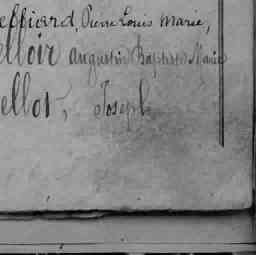 effiard, Pierre Louis Marie,
elloir Augustin Baptiste Marie
ellot, Joseph